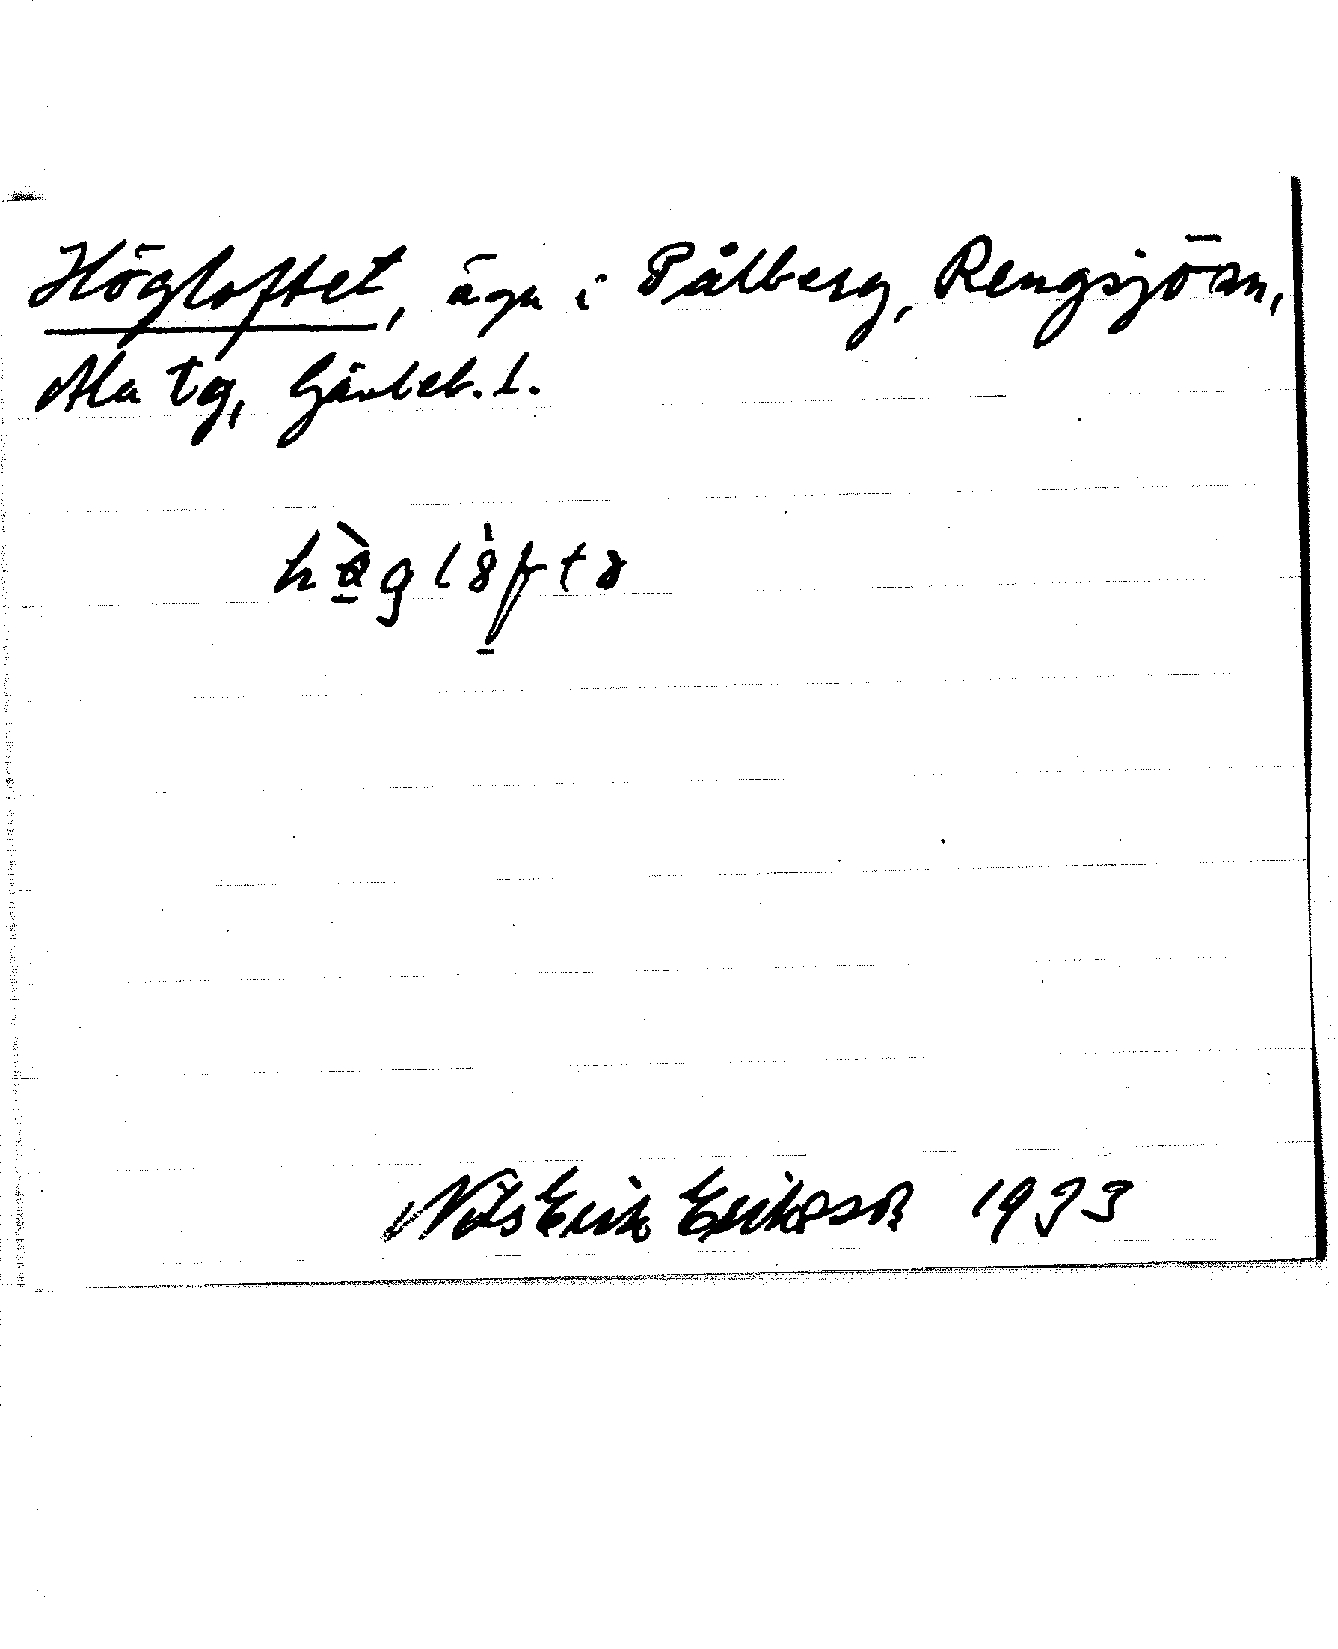 Högloftet, äga i Pålberg, Rengsjö sn,
Ala tg, Gävleb. l.
Nils Erik Eriksson 1933